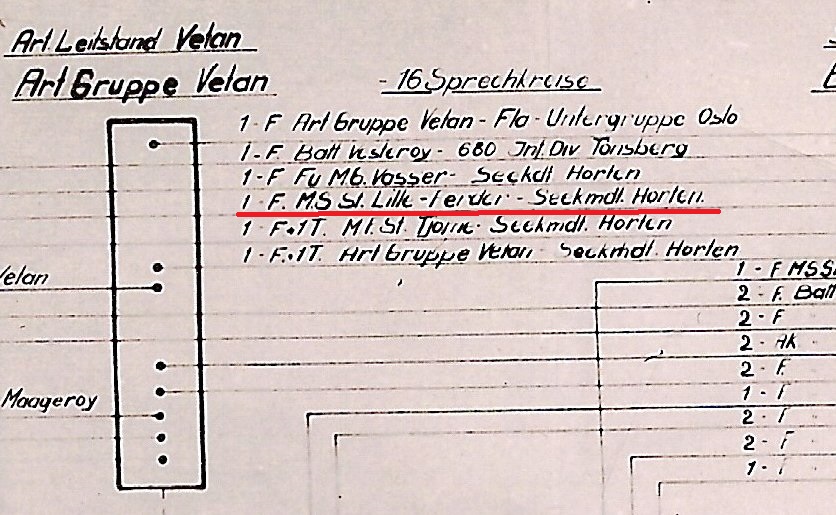 Art Leitstand Velan
Art Gruppe Velan
- 16 Sprechkreise
1 - F Art Gruppe Velan - Fla - Untergruppe Oslo
1 - F Batt Vesteroy - 680 Inf. Div Tönsberg
1 - F Fu M6. Vasser - Seekdt Horten
1 F. M.S St. Lille - Ferder - Seekmdt. Horten.
1 - F+1T. M1. St. Tjöme - Seekmdt. Horten
1 - F.+1T. Art Gruppe Velan - Seekmdt. Horten
Velan
Maageroy
1 - F MS S
2 - F. Batt
2 - F
2 - AK
2 - F
1 - F
2 - F
2 - F
1 -